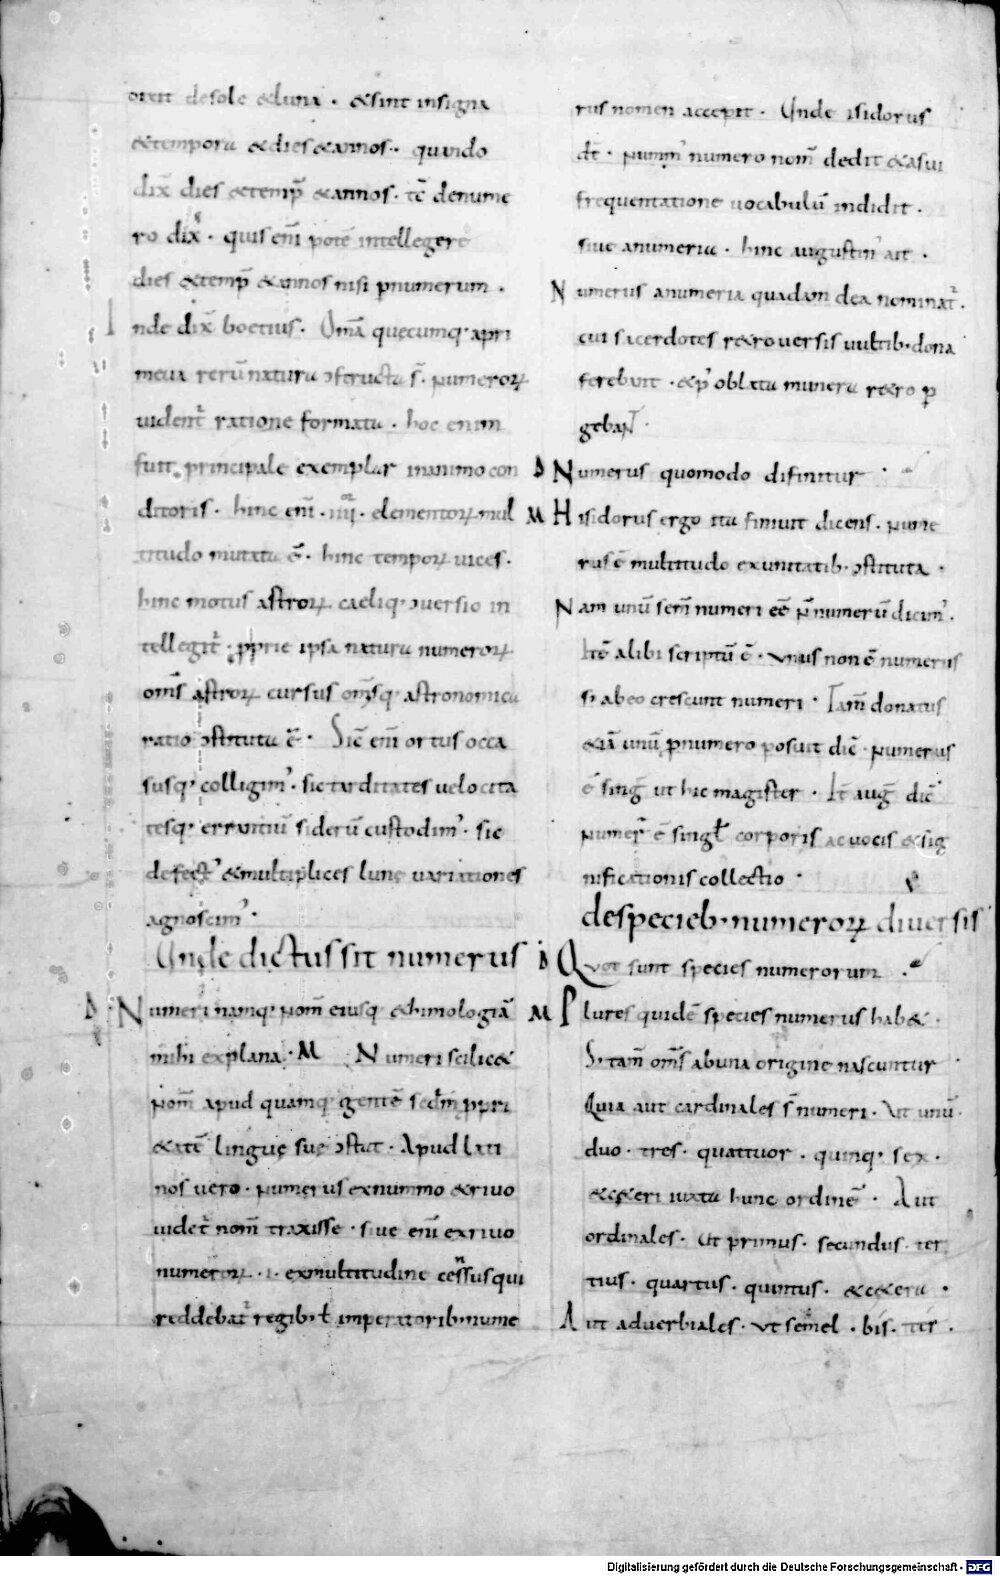 dixit desole &luna · &sint insigna
&tempora &dies&annos · quando
dix̅ dies &temp̅ &annos · tc̅ denume
ro dix̅ · quis eni̅ pote̅ intellegere
dies &temp̅ &annos nisi pnumerum ·
Inde dix̅ boetius · Om̅a quecumq· apri
meua reru̅ natura ɔstructa s̅ · numeroꝝ
uident̅ ratione formata · hoc enim
fuit principale exemplar inanimo con
ditoris · hinc eni̅ · iiii · elementoꝝ mul
titudo mutata e̅ · hinc tempoꝝ uices ·
hinc motus astroꝝ caeliq· ɔuersio in
tellegit̅ · pprie ipsa natura numeroꝝ
om̅s astroꝝ cursus om̅sq· astronomica
ratio ɔstituta e̅ · Sic eni̅ ortus occa
susq· colligim' · sic tarditates uelocita
tesq· errantiu̅ sideru̅ custodim' · sic
defect' &multiplices lunę uariationes
agnoscim' ·
Unde dictus sit numerus
D Numeri namq· nom̅ eiusq· &himologia̅
mihi explana · M Numeri scilic&
nom̅ apud quamq· gente̅ scdm̅ ppri
&ate̅ linguę suę ɔstat · Apud lati
nos uero · numerus exnummo &riuo
uidet̅ nom̅ traxisse · siue eni̅ exriuo
numeroꝝ · i · exmultitudine census qui
reddebat̅ regib· ł imperatorib· nume
rus nomen accepit · Unde isidorus
dt̅ · numm' numero nom̅ dedit &asui
frequentatione uocabulu̅ indidit ·
siue anumeria · hinc augustin' ait ·
Numerus anumeria quadam dea nominat̅ ·
cui sacerdotes r&rouersis uultib· dona
ferebant · &p' oblata munera r&ro p
gebant ·
D Numerus quomodo difinitur ·
M Hisidorus ergo ita finiuit dicens · nume
rus e̅ multitudo exunitatib· ɔstituta ·
Nam unu̅ sem̅ numeri ee̅ n̅ numeru̅ dicim' ·
Ite̅ alibi scriptu̅ e̅ · unus non e̅ numerus
s; abeo crescunt numeri · Tam̅ donatus
&ia̅ unu̅ pnumero posuit dic̅ · numerus
e̅ sing̅ ut hic magister · It̅ aug̅ dic̅
numer' e̅ singł corporis ac uocis &sig
nificationis collectio ·
despecieb· numeroꝝ diuersis
D Quot sunt species numerorum ·
M Plures quide̅ species numerus hab& ·
S; tam̅ om̅s abuna origine nascuntur
Quia aut cardinales s̅ numeri · Ut unu̅ ·
duo · tres · quattuor · quinq· sex ·
&c&eri iuxta hunc ordine̅ · Aut
ordinales · Ut primus · secundus · ter
tius · quartus · quintus · &c&era ·
Aut aduerbiales · ut semel · bis · ter ·
Digitalisierung gefördert durch die Deutsche Forschungsgemeinschaft - DFG